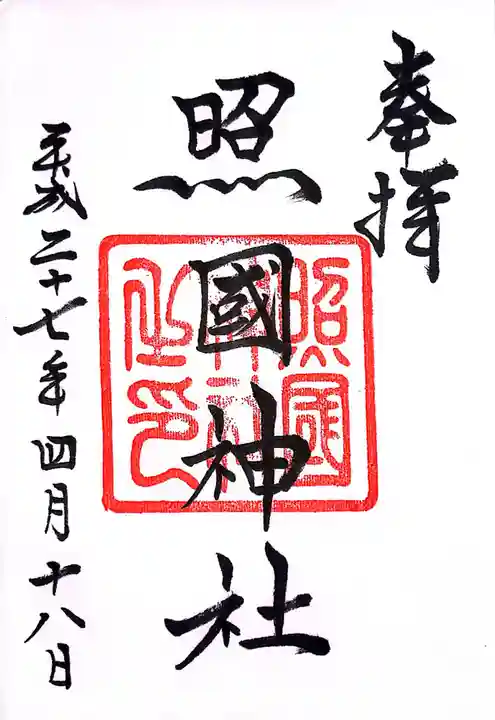 奉拝
照國神社
照國神社之印
平成二十七年四月十八日